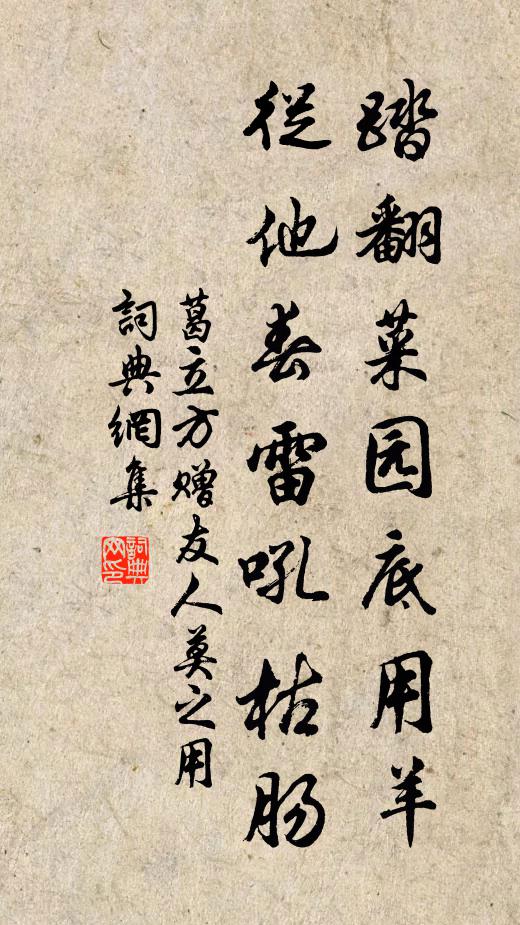 踏翻菜园底用羊
從他春雷吼枯肠
葛立方赠友人莫之用
詞典網集
詞典網印